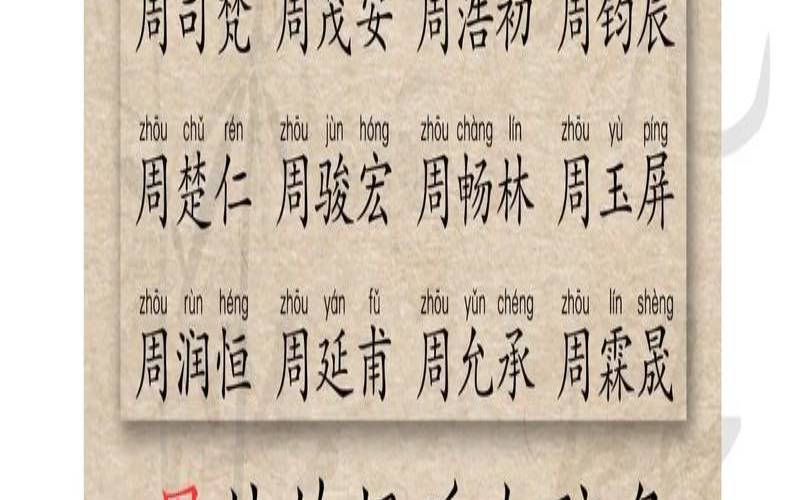 周司梵 周茂安 周浩初 周钧辰
zhōu chǔ rén zhōu jùn hóng zhōu chàng lín zhōu yù píng
周楚仁 周骏宏 周畅林 周玉屏
zhōu rùn héng zhōu yán fǔ zhōu yǔn chéng zhōu lín shèng
周润恒 周延甫 周允承 周霖晟